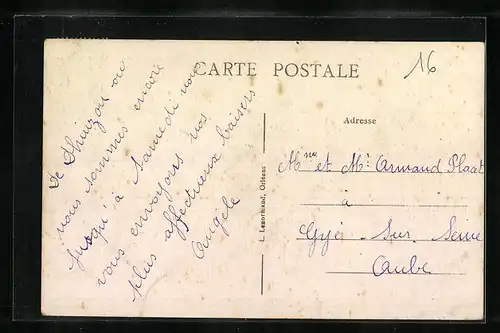 CARTE POSTALE
16
De Thuezou ou
nous sommes encore
jusqu'à samedi nous
vous envoyons nos
plus affectueux baisers
Angèle
L. Lenormand, Orléans
Adresse
Mme et Mr Armand Placat
à
Gyé-Sur-Seine
Aube